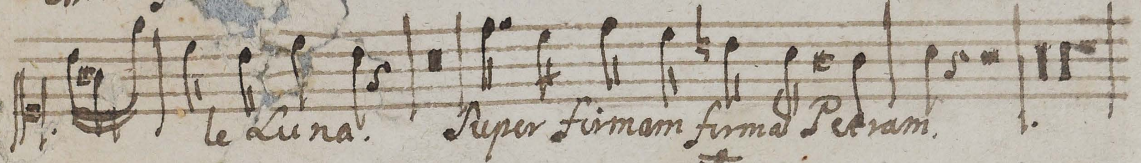 le Luna. Super firmam firmã Petram.